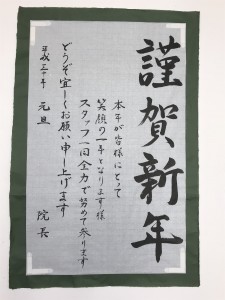 謹賀新年
本年が皆様にとって
笑顔の一年となります様
スタッフ一同全力で努めて参ります
どうぞ宜しくお願い申し上げます
平成三十年 元旦
院長